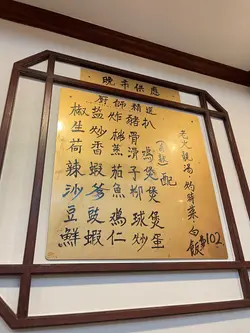 晚市供應
厨師精選
椒盐炸豬扒
生炒骨
荷香蒸滑鸡
辣蝦茄子煲
沙爹魚柳煲
豆豉鳮球煲
鮮蝦仁炒蛋
配
老火靚湯 灼時菜 白飯 $102